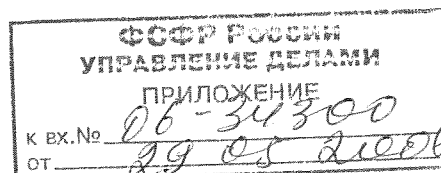 ФСФР РОССИИ
УПРАВЛЕНИЕ ДЕЛАМИ
ПРИЛОЖЕНИЕ
К ВХ.№ 06-34300
ОТ 29 05 2006